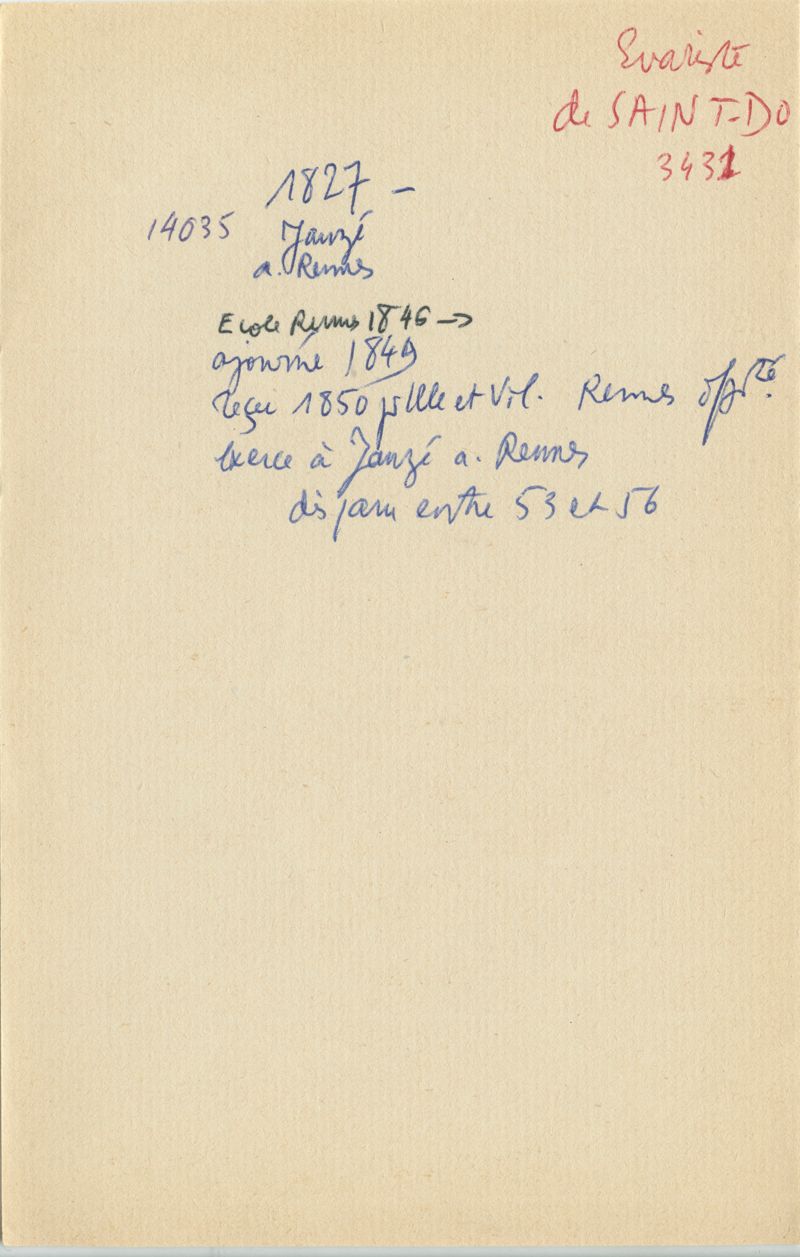 Evariste
de SAINT-DO
3431
1827 -
14035 Janzé
a. Rennes
Ecole Rennes 1846 →
ajourné 1849
reçu 1850 pr Ille et Vil. Rennes
exerce à Janzé a. Rennes
disparu entre 53 et 56